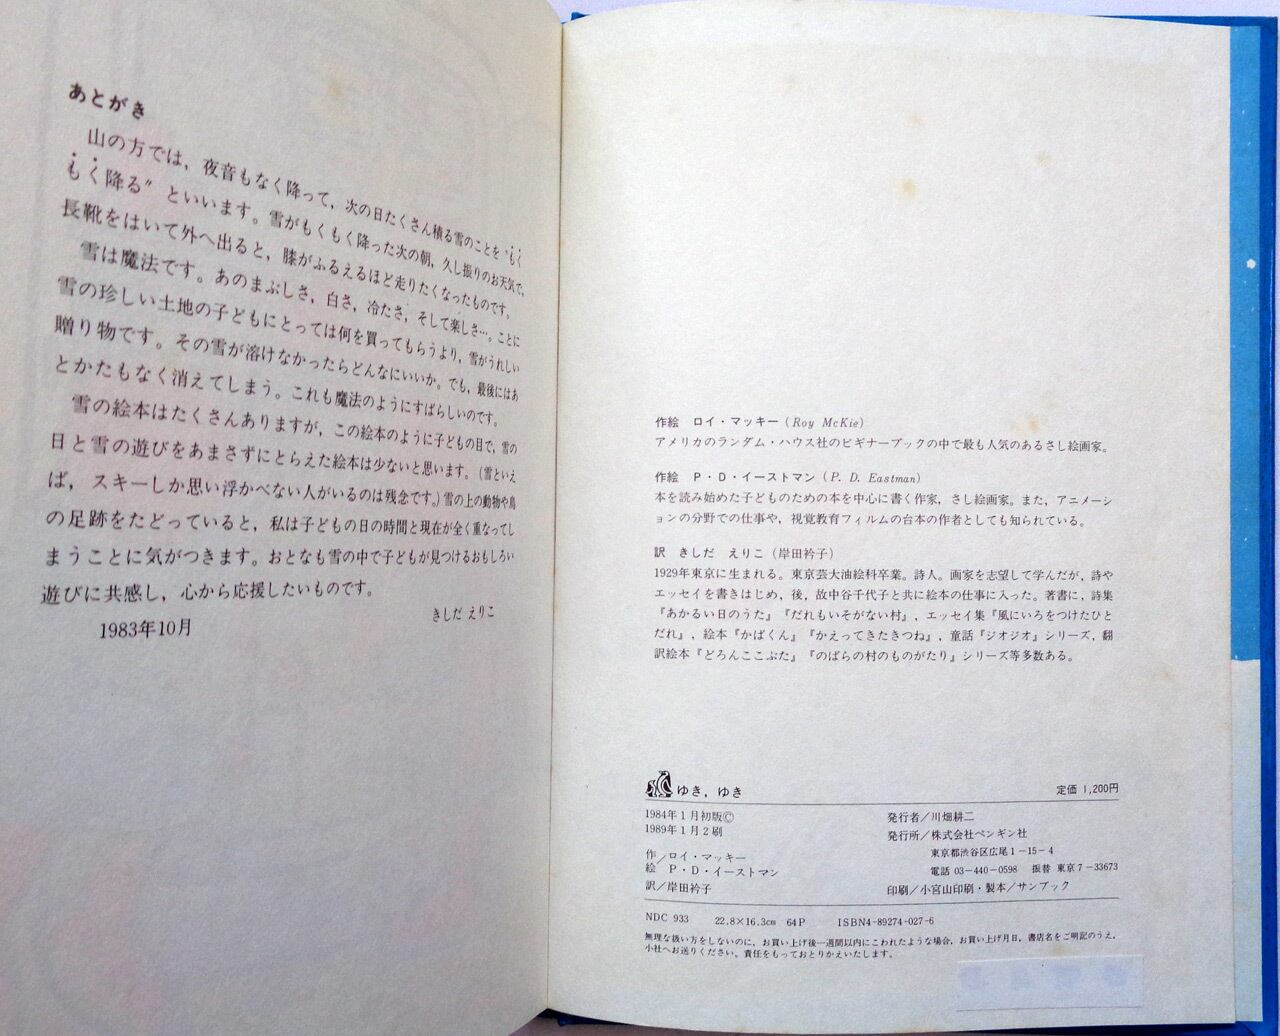 あとがき
山の方では，夜音もなく降って，次の日たくさん積る雪のことを〝もく
もく降る〟といいます。雪がもくもく降った次の朝，久し振りのお天気で，
長靴をはいて外へ出ると，膝がふるえるほど走りたくなったものです。
雪は魔法です。あのまぶしさ，白さ，冷たさ，そして楽しさ…。ことに
雪の珍しい土地の子どもにとっては何を買ってもらうより，雪がうれしい
贈り物です。その雪が溶けなかったらどんなにいいか。でも，最後にはあ
とかたもなく消えてしまう。これも魔法のようにすばらしいのです。
雪の絵本はたくさんありますが，この絵本のように子どもの目で，雪の
日と雪の遊びをあまさずにとらえた絵本は少ないと思います。（雪といえ
ば，スキーしか思い浮かべない人がいるのは残念です。）雪の上の動物や鳥
の足跡をたどっていると，私は子どもの日の時間と現在が全く重なってし
まうことに気がつきます。おとなも雪の中で子どもが見つけるおもしろい
遊びに共感し，心から応援したいものです。
きしだ えりこ
1983年10月
作絵 ロイ・マッキー（Roy McKie）
アメリカのランダム・ハウス社のビギナーブックの中で最も人気のあるさし絵画家。
作絵 P・D・イーストマン（P. D. Eastman）
本を読み始めた子どものための本を中心に書く作家，さし絵画家。また，アニメーシ
ョンの分野での仕事や，視覚教育フィルムの台本の作者としても知られている。
訳 きしだ えりこ（岸田衿子）
1929年東京に生まれる。東京芸大油絵科卒業。詩人。画家を志望して学んだが，詩や
エッセイを書きはじめ，後，故中谷千代子と共に絵本の仕事に入った。著書に，詩集
『あかるい日のうた』『だれもいそがない村』，エッセイ集『風にいろをつけたひと
だれ』，絵本『かばくん』『かえってきたきつね』，童話『ジオジオ』シリーズ，翻
訳絵本『どろんここぶた』『のばらの村のものがたり』シリーズ等多数ある。
ゆき，ゆき 定価 1,200円
1984年1月初版Ⓒ
1989年1月2刷
作／ロイ・マッキー
絵 P・D・イーストマン
訳／岸田衿子
発行者／川畑耕二
発行所／株式会社ペンギン社
東京都渋谷区広尾1－15－4
電話 03－440－0598 振替 東京7－33673
印刷／小宮山印刷・製本／サンブック
NDC 933 22.8×16.3cm 64P ISBN4-89274-027-6
無理な扱い方をしないのに，お買い上げ後一週間以内にこわれたような場合，お買い上げ月日，書店名をご明記のうえ，
小社へお送りください。責任をもっておとりかえいたします。